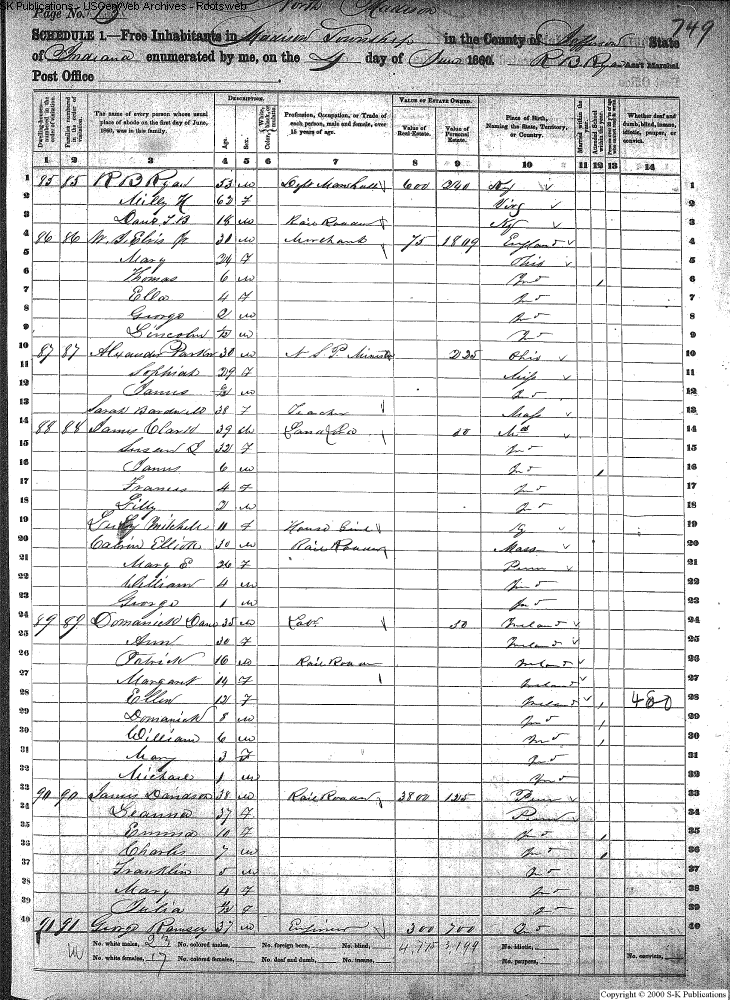 S-K Publications - USGenWeb Archives - Rootsweb
Page No. 13 North Madison 749
SCHEDULE 1.—Free Inhabitants in Madison Township in the County of Jefferson State
of Indiana enumerated by me, on the 4 day of June 1860. R B Ryan Ass't Marshal
Post Office
DESCRIPTION. VALUE OF ESTATE OWNED.
Dwelling-houses—numbered in the order of visitation. Families numbered in the order of visitation. The name of every person whose usual place of abode on the first day of June, 1860, was in this family. Age. Sex. Color, White, black, or mulatto. Profession, Occupation, or Trade of each person, male and female, over 15 years of age. Value of Real Estate. Value of Personal Estate. Place of Birth, Naming the State, Territory, or Country. Married within the year. Attended School within the year. Whether deaf and dumb, blind, insane, idiotic, pauper, or convict.
1 2 3 4 5 6 7 8 9 10 11 12 13 14
1 85 85 R B Ryan 53 m Dept Marshall 600 240 Ky 1
2 Milly H 62 f Virg 2
3 18 m Rail Roader Ky 3
4 86 86 31 m Merchant 75 1809 England 4
5 Mary 24 f Ohio 5
6 Thomas 6 m Ind 6
7 Ella 4 f Ind 7
8 George 2 m Ind 8
9 Lincoln m Ind 9
10 87 87 Alexander Parker 30 m N S P Minister 225 Ohio 10
11 Sophiah 29 f Miss 11
12 James m Ind 12
13 Sarah Bardwell 38 f Teacher Mass 13
14 88 88 James Clark 39 m 14
15 Susan 32 f Ind 15
16 James 6 m Ind 16
17 Frances 4 f Ind 17
18 2 m Ind 18
19 Mitchell 11 f House Ky 19
20 Calvin Elliott 30 m Rail Roader Mass 20
21 Mary E 26 f Penn 21
22 William 4 m Ind 22
23 George 1 m Ind 23
24 89 89 Domanick 35 m Labr 50 Ireland 24
25 Ann 30 f Ireland 25
26 Patrick 16 m Rail Roader Ireland 26
27 Margaret 14 f Ireland 27
28 Ellen 12 f Ireland 28
29 Domanick 8 m Ind 29
30 William 6 m Ind 30
31 Mary 3 f Ind 31
32 Michael 1 m Ind 32
33 90 90 James Davidson 38 m Rail Roader 3800 125 Penn 33
34 Leanna 37 f Penn 34
35 Emma 10 f Ind 35
36 Charles 7 m Ind 36
37 Franklin 5 m Ind 37
38 Mary 4 f Ind 38
39 Julia f Ind 39
40 91 91 George Ramsey 37 m Engineer 300 700 40
No. white males, 23 No. colored males, No. foreign born, No. blind, 4,775 3,199 No. idiotic, No. convicts,
No. white females, 17 No. colored females, No. deaf and dumb, No. insane, No. paupers,
Copyright © 2000 S-K Publications